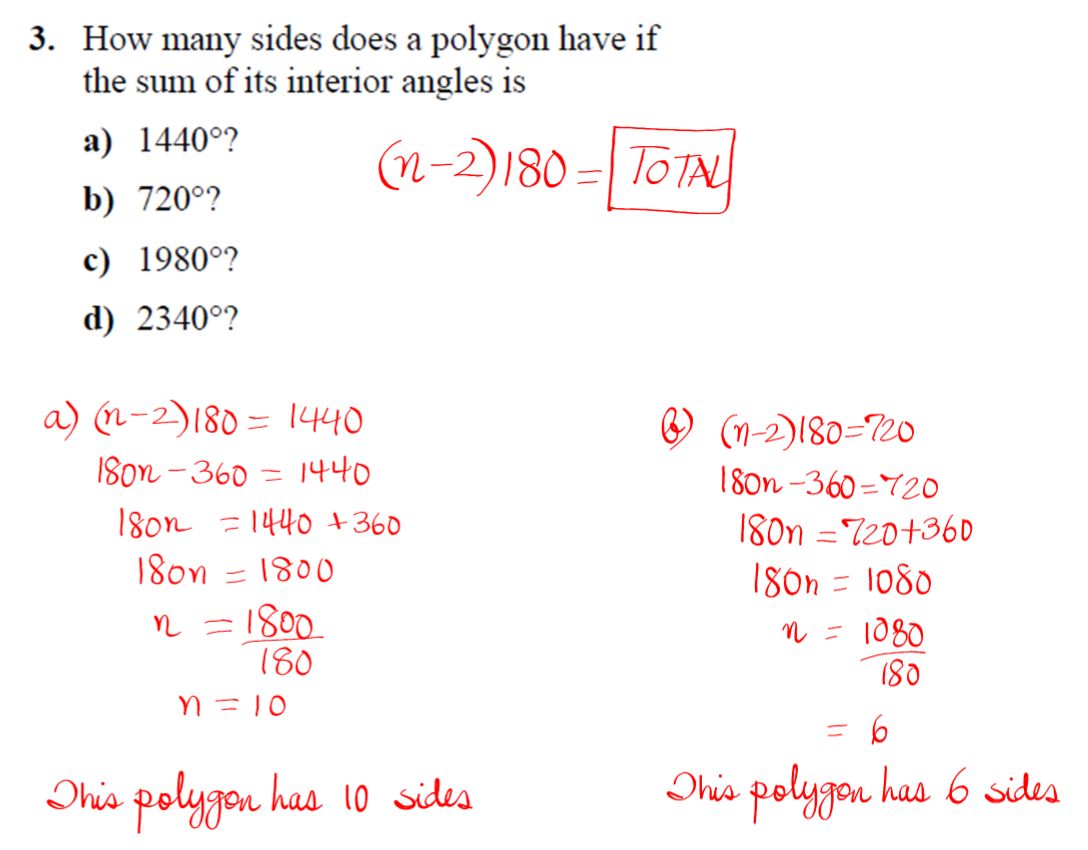 3. How many sides does a polygon have if
the sum of its interior angles is
a) 1440°?
b) 720°?
c) 1980°?
d) 2340°?
(n-2)180 = TOTAL
a) (n-2)180 = 1440
180n - 360 = 1440
180n = 1440 + 360
180n = 1800
n = 1800
180
n = 10
This polygon has 10 sides
b) (n-2)180=720
180n-360=720
180n = 720+360
180n = 1080
n = 1080
180
= 6
This polygon has 6 sides